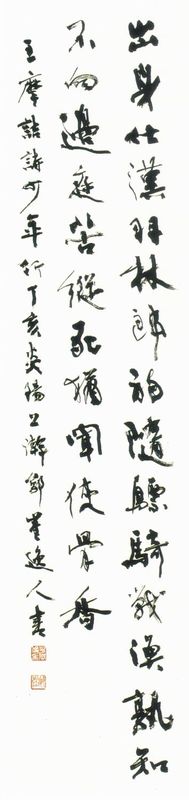 出身仕漢羽林郎初隨驃騎戰漁孰知
不向邊庭苦縱死猶聞俠骨香
王摩詰詩少年行丁亥炎陽公瀚鄧
逸人書